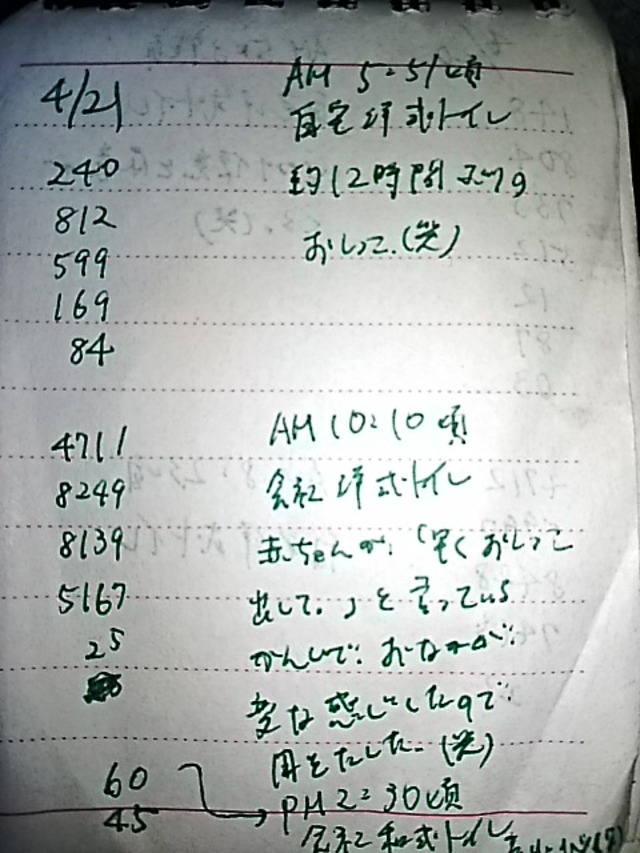 4/21
AM 5:51頃
自宅洋式トイレ
240
約12時間ぶりの
812
おしっこ。(笑)
599
169
84
4711
AM 10:10頃
8249
会社洋式トイレ
8139
赤ちゃんが、「早くおしっこ
5167
出して。」と言っている
25
かんじで、おなかが、
変な感じしたので
用をたした。(笑)
60
PM 2:30頃
45
会社和式トイレ